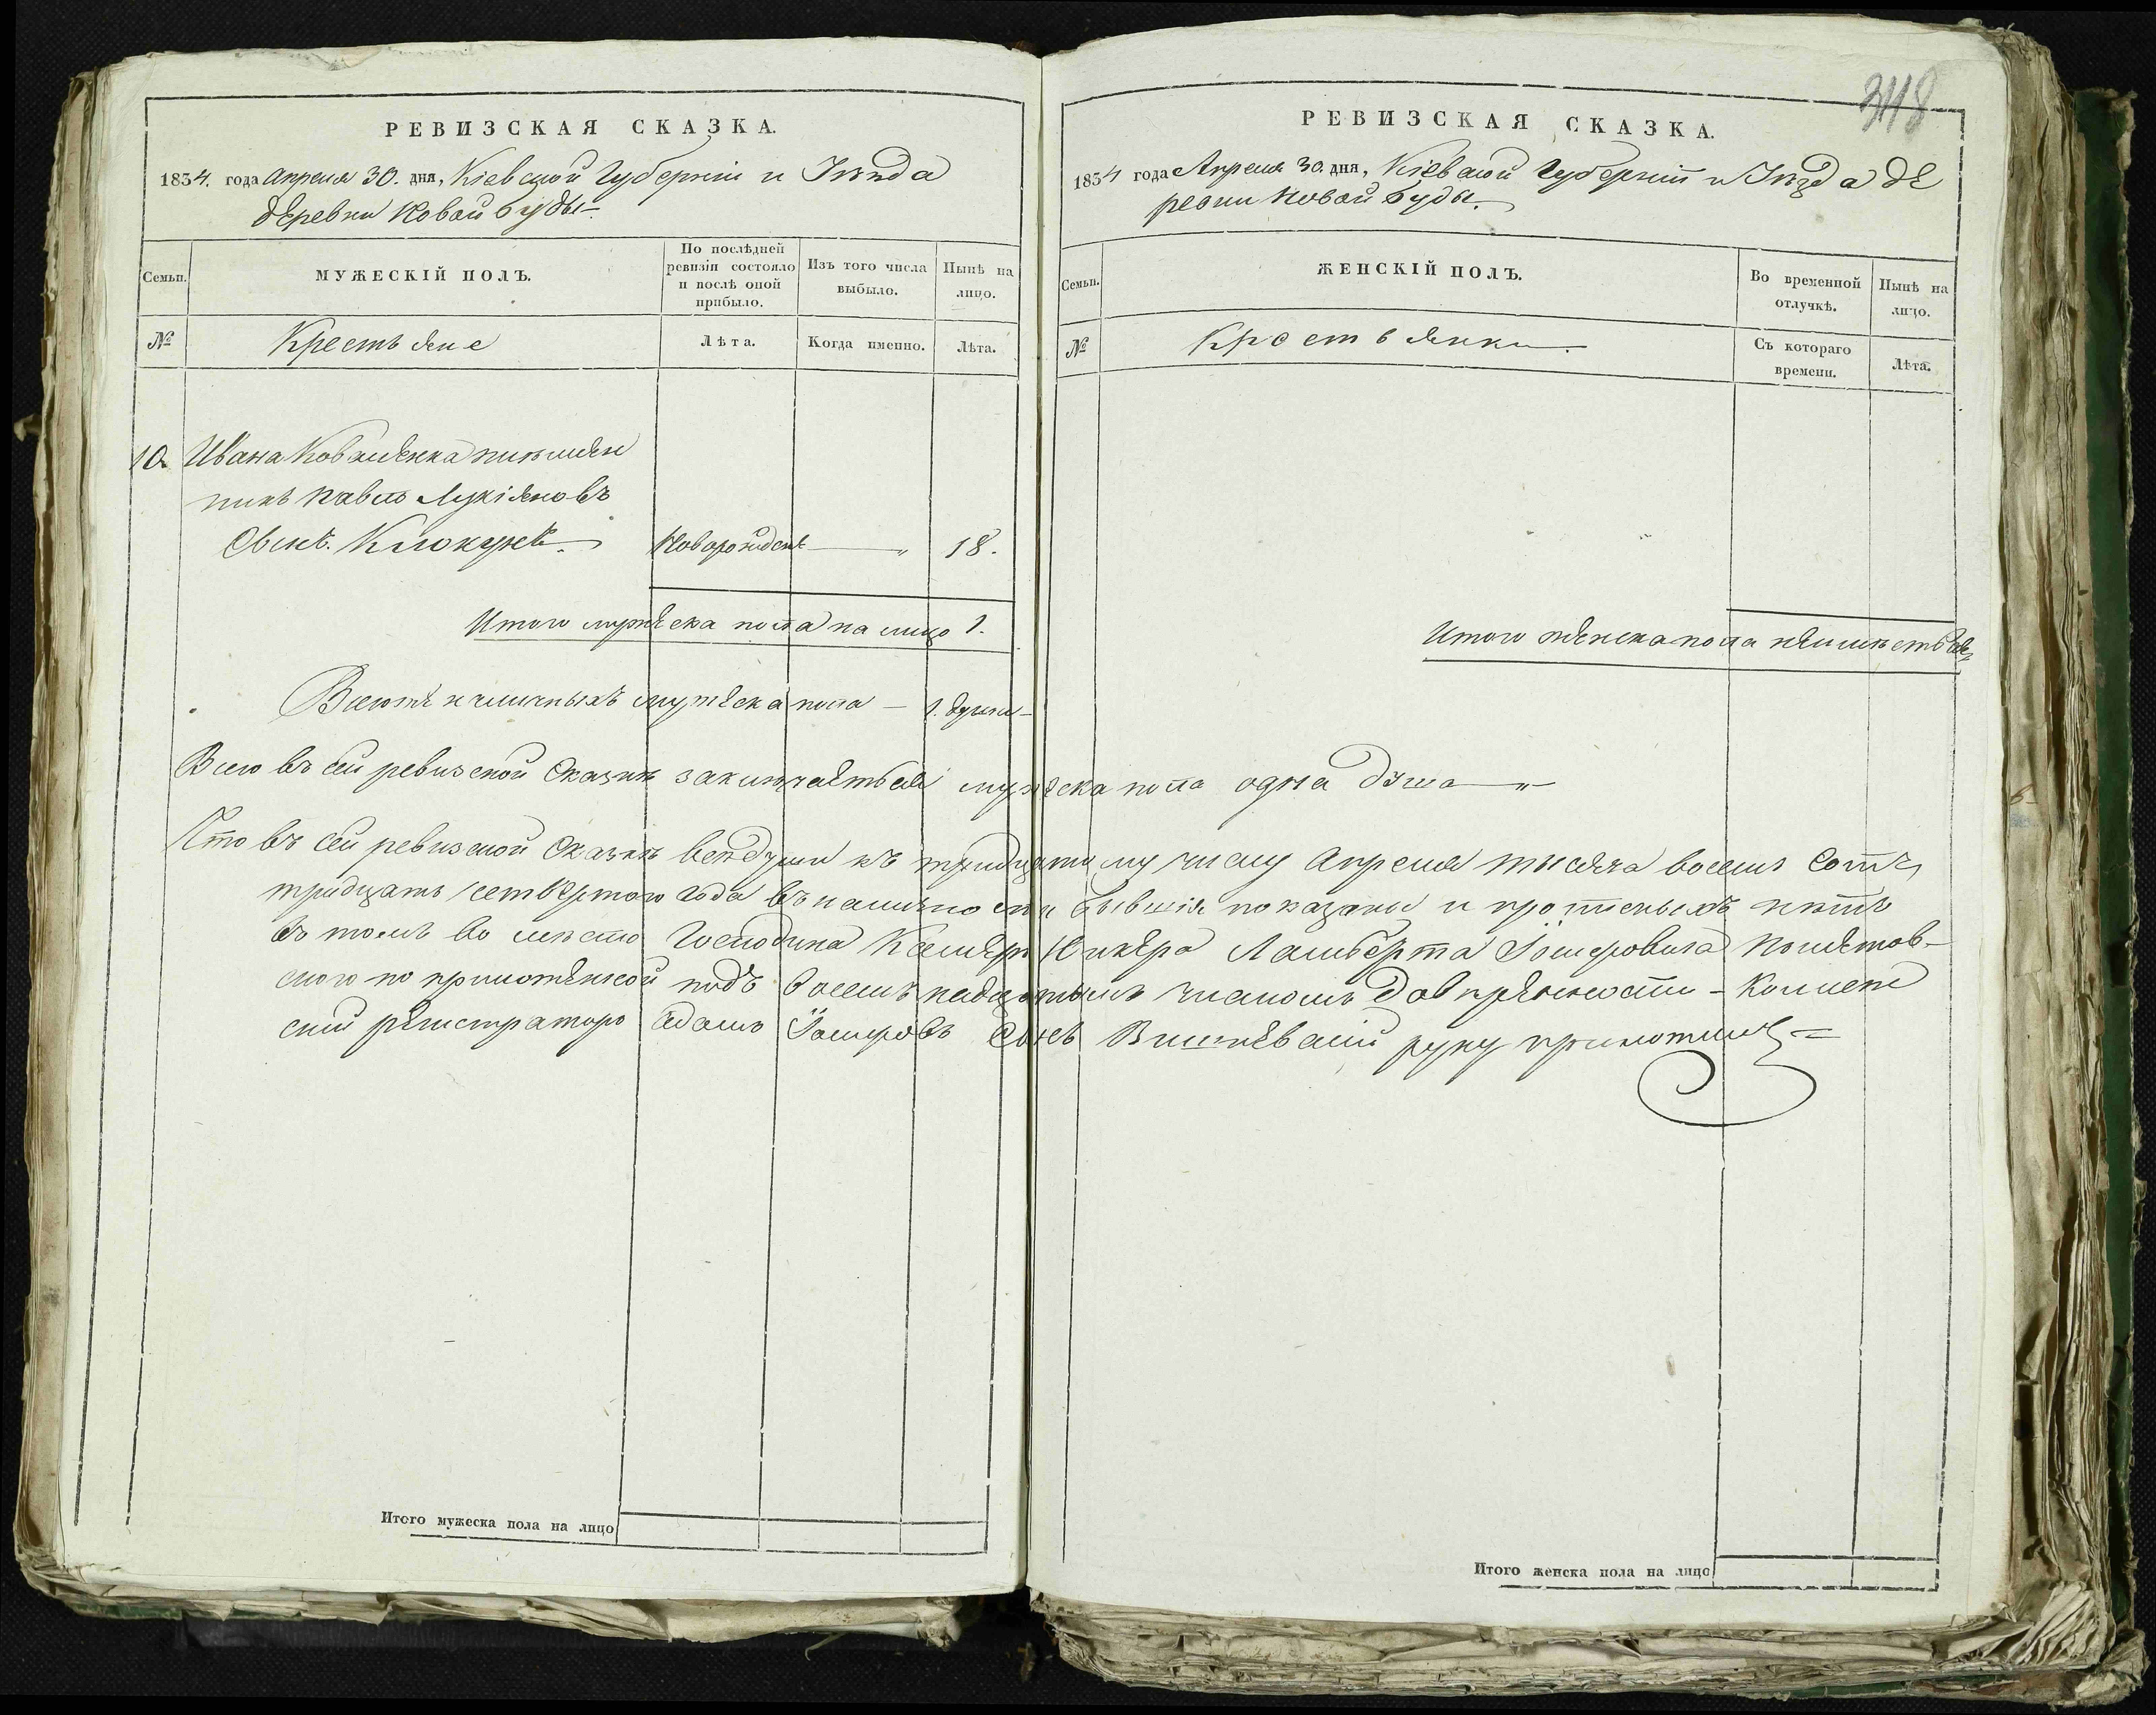 РЕВИЗСКАЯ СКАЗКА.
1834. года Апреля 30. дня, Кіевской Губерніи и Уѣзда
деревни Новой буды
Семьи.
МУЖЕСКІЙ ПОЛЪ.
По послѣдней ревизіи состояло и послѣ оной прибыло.
Изъ того числа выбыло.
Нынѣ на лицо.
№
Крестьяне
Лѣта.
Когда именно.
Лѣта.
10. Ивана Коваленка племян
никъ Павелъ Лукіяновъ
Сынъ. новорожденъ — " 18.
Итого мужеска пола на лицо 1.
Всегоже наличныхъ мужеска пола — 1. душа
Всего въ сей ревизской Сказкѣ заключается мужеска пола одна душа — "
Что въ сей ревизской Сказкѣ все души къ тридцатому числу Апреля тысяча восемь Сотъ
тридцать четвертого года въ наличности бывшія показаны и прописныхъ нѣтъ
въ томъ во место Господина Камеръ Юнкера Ламберта Іосифовича
по приложенной подъ восемнадцатымъ числомъ довѣренности - Коллеж
скій регистраторъ Адамъ Іосифовъ Сынъ Вишневскій руку приложилъ =
Итого мужеска пола на лицо
348
РЕВИЗСКАЯ СКАЗКА.
1834 года Апреля 30. дня, Кіевской Губерніи и Уѣзда де
ревни Новой буды.
Семьи.
ЖЕНСКІЙ ПОЛЪ.
Во временной отлучкѣ.
Нынѣ на лицо.
№
Крестьянки.
Съ котораго времени.
Лѣта.
Итого женска пола
Итого женска пола на лицо